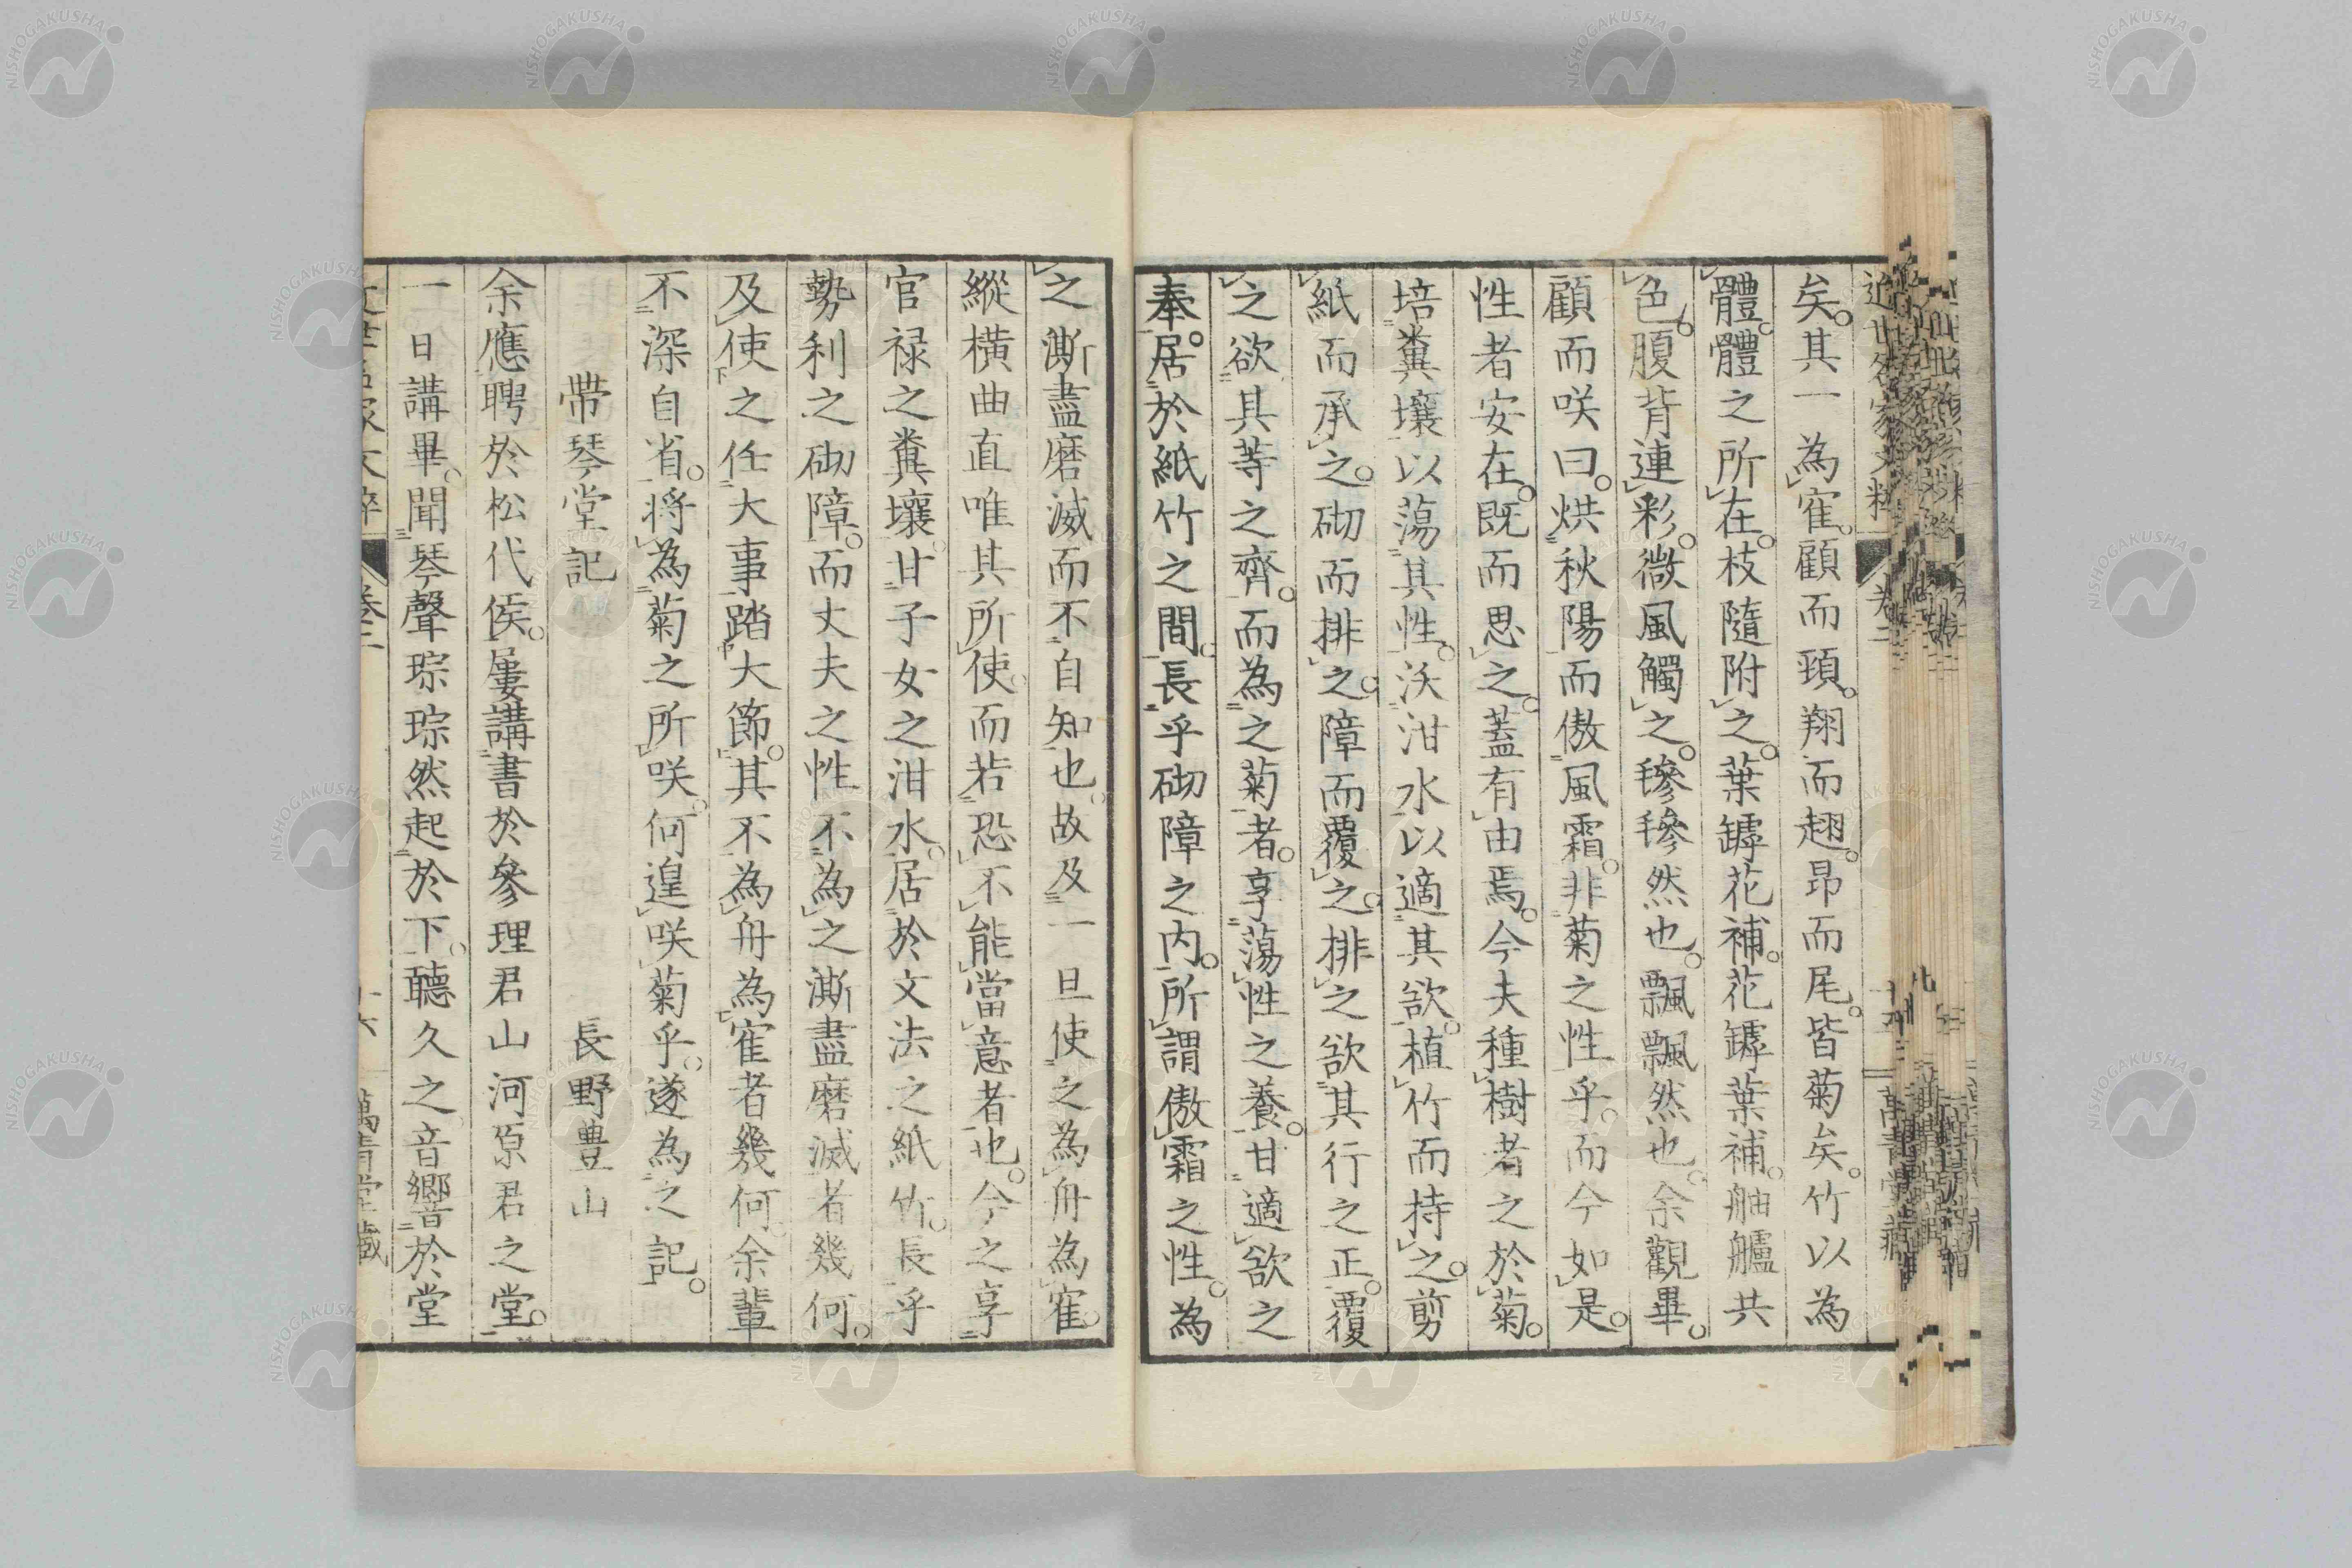 矣。其一為寉。顧而頸。翔而翅。昂而尾。皆菊矣。竹以為
體。體之所在。枝隨附之。葉罅花補。花罅葉補。舳艫共
色。腹背連彩。微風觸之。毿毿然也。飄飄然也。余觀畢。
顧而咲曰。烘秋陽而傲風霜。非菊之性乎。而今如是。
性者安在。既而思之。蓋有由焉。今夫種樹者之於菊。
培糞壤以蕩其性。沃泔水以適其欲。植竹而持之。剪
紙而承之。砌而排之。障而覆之。排之欲其行之正。覆
之欲其等之齊。而為之菊者。享蕩性之養。甘適欲之
奉。居於紙竹之間。長乎砌障之内。所謂傲霜之性。為
之澌盡磨滅而不自知也。故及一旦使之為舟為寉。
縱橫曲直唯其所使。而若恐不能當意者也。今之享
官禄之糞壤。甘子女之泔水。居於文法之紙竹。長乎
勢利之砌障。而丈夫之性不為之澌盡磨滅者幾何。
及使之任大事踏大節。其不為舟為寉者幾何。余輩
不深自省。將為菊之所咲。何遑咲菊乎。遂為之記。
帶琴堂記 長野豊山
余應聘於松代侯。屢講書於參理君山河原君之堂。
一日講畢。聞琴聲琮琮然起於下。聽久之音響於堂
卷二
萬青堂藏